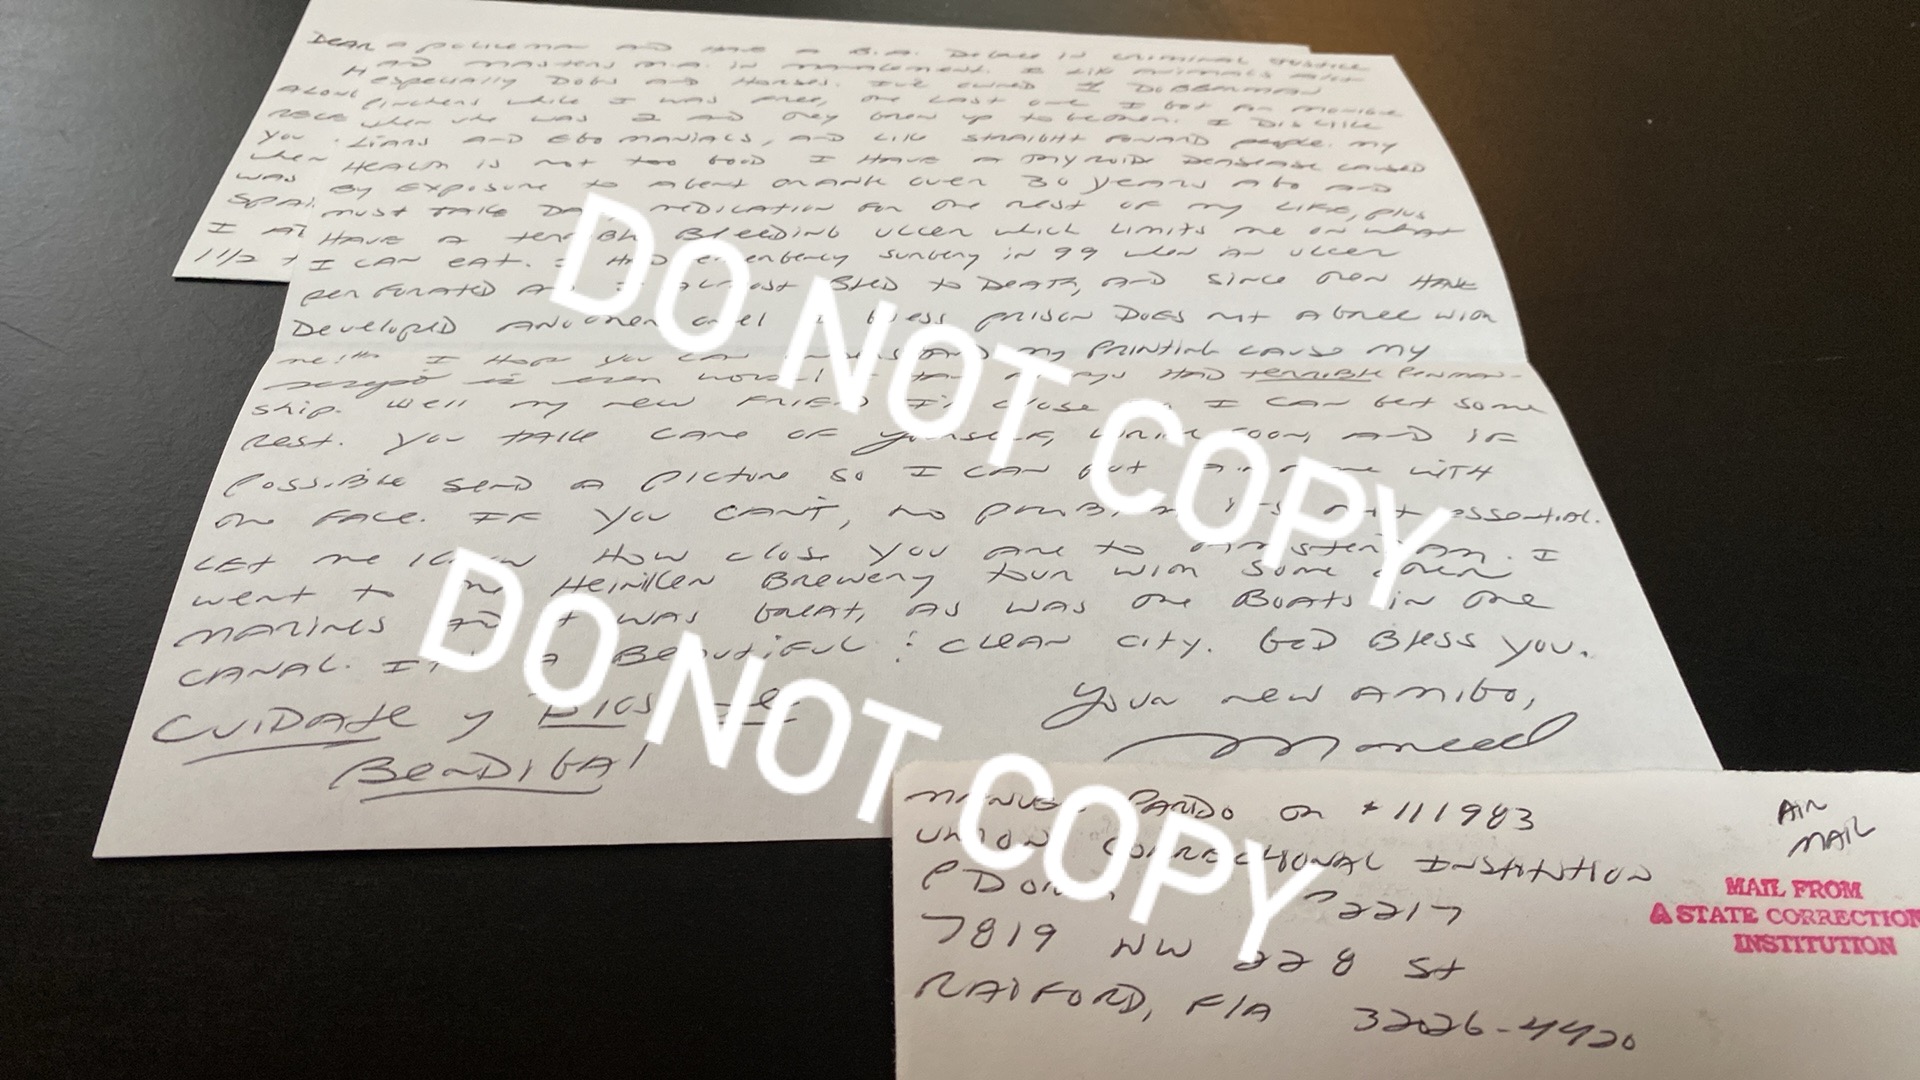 Dear
H
ALONG
Rece
you
when
was
Spai
I AT
1 1/2 +
a policeman and have a B.A. Degree in criminal justice
and masters M.A. in management. I like animals alot
especially Dogs and Horses. I've owned Doberman
Pinchers while I was free, the last one I got
when she was 2 and they grew up together. I Dislike
Liars and Egomaniacs, and like straight forward people. my
Health is not too good I have a thyroid caused
By exposure to agent orange over 30 years ago and
must take medication for the rest of my life, plus
Have a terrible Bleeding ulcer which limits me on what
I can eat. I had emergency surgery in 99 when an ulcer
perforated and I almost Bled to Death, and since then Have
Developed another prison Does not agree with
me!!! I Hope you can understand my Printing cause my
script is even worse! I Have always Had terrible Penman-
ship. Well my new Friend I'll close I can get some
Rest. You take care of yourself, write soon, and if
possible send a picture so I can put a name with
the face. If you can't, no problem it's not essential.
Let me know How close you are to Amsterdam. I
went to the Heiniken Brewery tour with some other
marines and it was great, as was the Boats in the
canal. It's a Beautiful & clean city. God Bless you.
Your new Amigo,
Manuel
Cuidate y Dios te
Bendiga!
Manuel Pardo Jr # 111983
Union Correctional Institution
P Dorm, 2217
7819 NW 228 St
Raiford, Fla 32026-4420
Air
Mail
MAIL FROM
A STATE CORRECTION
INSTITUTION
DO NOT COPY
DO NOT COPY